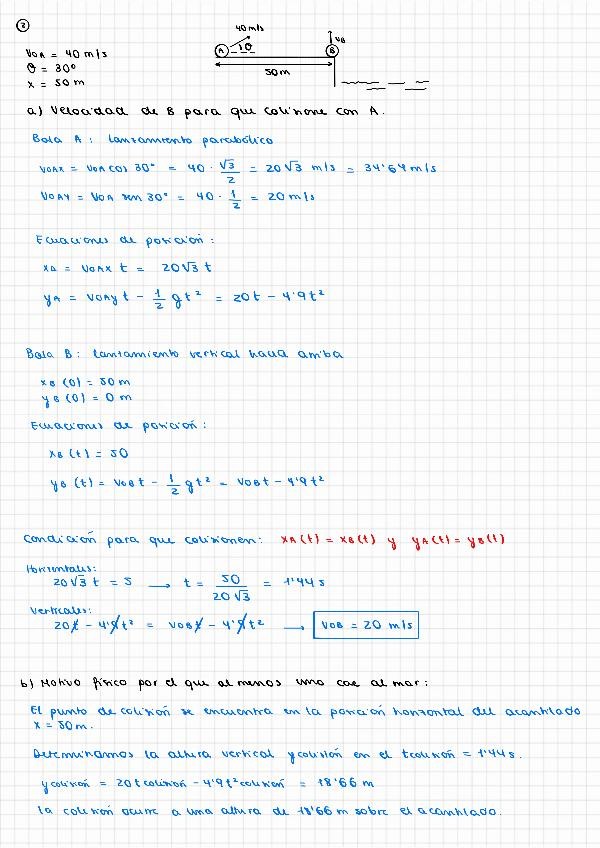 2
40 m/s
VB
A
30
B
50 m
VOA = 40 m/s
θ = 30°
x = 50 m
a) Velocidad de B para que colisione con A.
Bola A: Lanzamiento parabólico
VOAX = VOA cos 30° = 40 · √3/2 = 20√3 m/s = 34'64 m/s
VOAY = VOA sen 30° = 40 · 1/2 = 20 m/s
Ecuaciones de posición:
xA = VOAX t = 20√3 t
yA = VOAy t - 1/2 g t² = 20t - 4'9t²
Bola B: Lanzamiento vertical hacia arriba
xB (0) = 50 m
yB (0) = 0 m
Ecuaciones de posición:
xB (t) = 50
yB (t) = VOB t - 1/2 g t² = VOB t - 4'9t²
Condición para que colisionen: xA (t) = xB (t) y yA (t) = yB (t)
Horizontales:
20√3 t = 5 → t = 50/20√3 = 1'44 s
Verticales:
20t - 4'9t² = VOB t - 4'9t² → VOB = 20 m/s
b) Motivo físico por el que al menos uno cae al mar:
El punto de colisión se encuentra en la posición horizontal del acantilado
x = 50 m.
Determinamos la altura vertical ycolisión en el tcolisión = 1'44 s.
ycolisión = 20 tcolisión - 4'9t² colisión = 18'66 m
La colisión ocurre a una altura de 18'66 m sobre el acantilado.